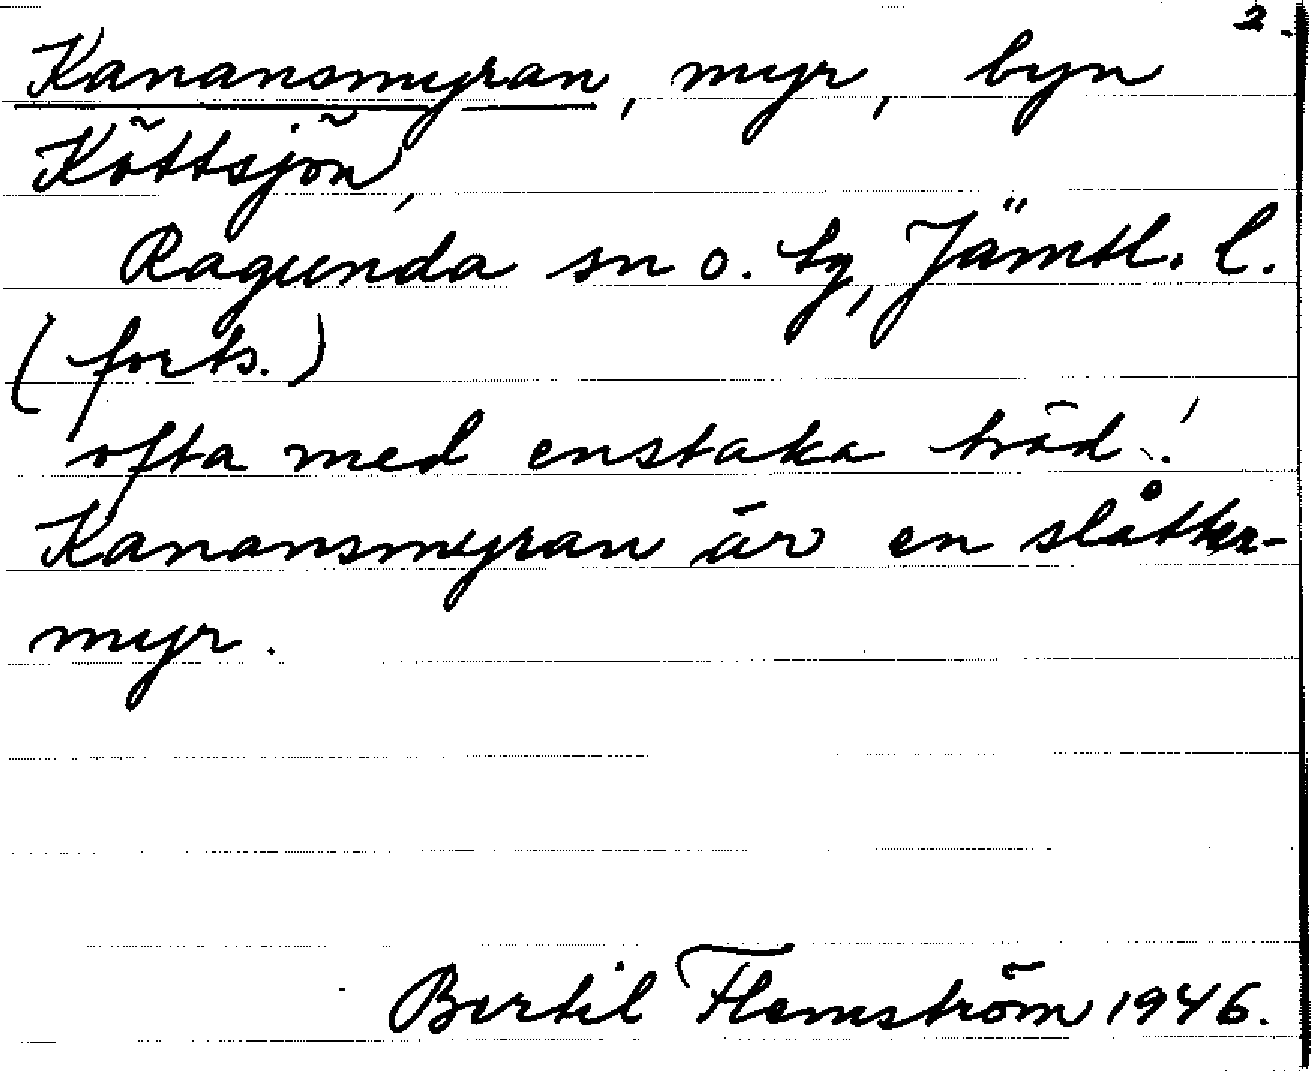 2.
Kanansmyran, myr, byn
Köttsjön,
Ragunda sn o. tg, Jämtl. l.
(forts.)
ofta med enstaka träd!
Kanansmyran är en slåtter-
myr.
Bertil Flemström 1946.